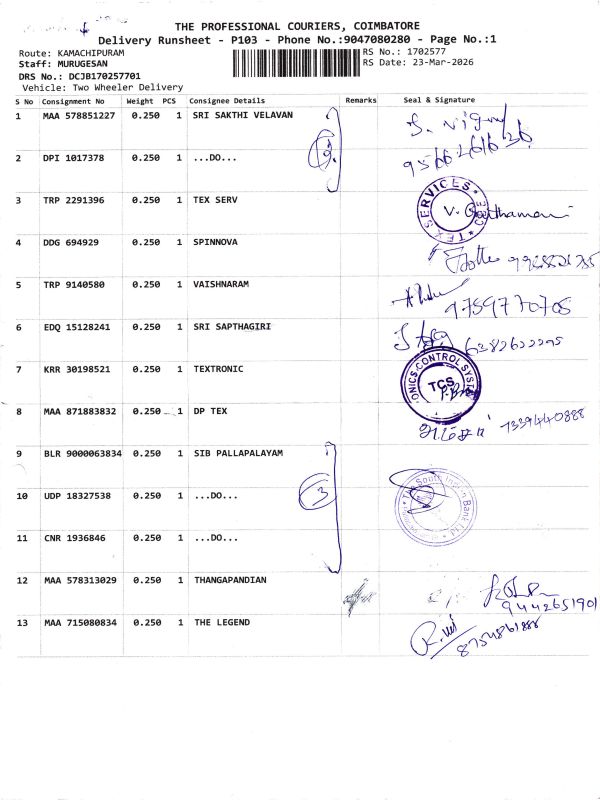 THE PROFESSIONAL COURIERS, COIMBATORE
Delivery Runsheet - P103 - Phone No.:9047080280 - Page No.:1
Route: KAMACHIPURAM RS No.: 1702577
Staff: MURUGESAN RS Date: 23-Mar-2026
DRS No.: DCJB170257701
Vehicle: Two Wheeler Delivery
S No Consignment No Weight PCS Consignee Details Remarks Seal & Signature
1 MAA 578851227 0.250 1 SRI SAKTHI VELAVAN
2 DPI 1017378 0.250 1 ...DO...
3 TRP 2291396 0.250 1 TEX SERV TEX SERVICES CBE
4 DDG 694929 0.250 1 SPINNOVA
5 TRP 9140580 0.250 1 VAISHNARAM 9759770705
6 EDQ 15128241 0.250 1 SRI SAPTHAGIRI 6382622295
7 KRR 30198521 0.250 1 TEXTRONIC ONICS CONTROL SYSTEM TCS
8 MAA 871883832 0.250 1 DP TEX 7339440888
9 BLR 9000063834 0.250 1 SIB PALLAPALAYAM
10 UDP 18327538 0.250 1 ...DO... 3 The South Indian Bank Ltd
11 CNR 1936846 0.250 1 ...DO...
12 MAA 578313029 0.250 1 THANGAPANDIAN 9442651901
13 MAA 715080834 0.250 1 THE LEGEND 8754861888